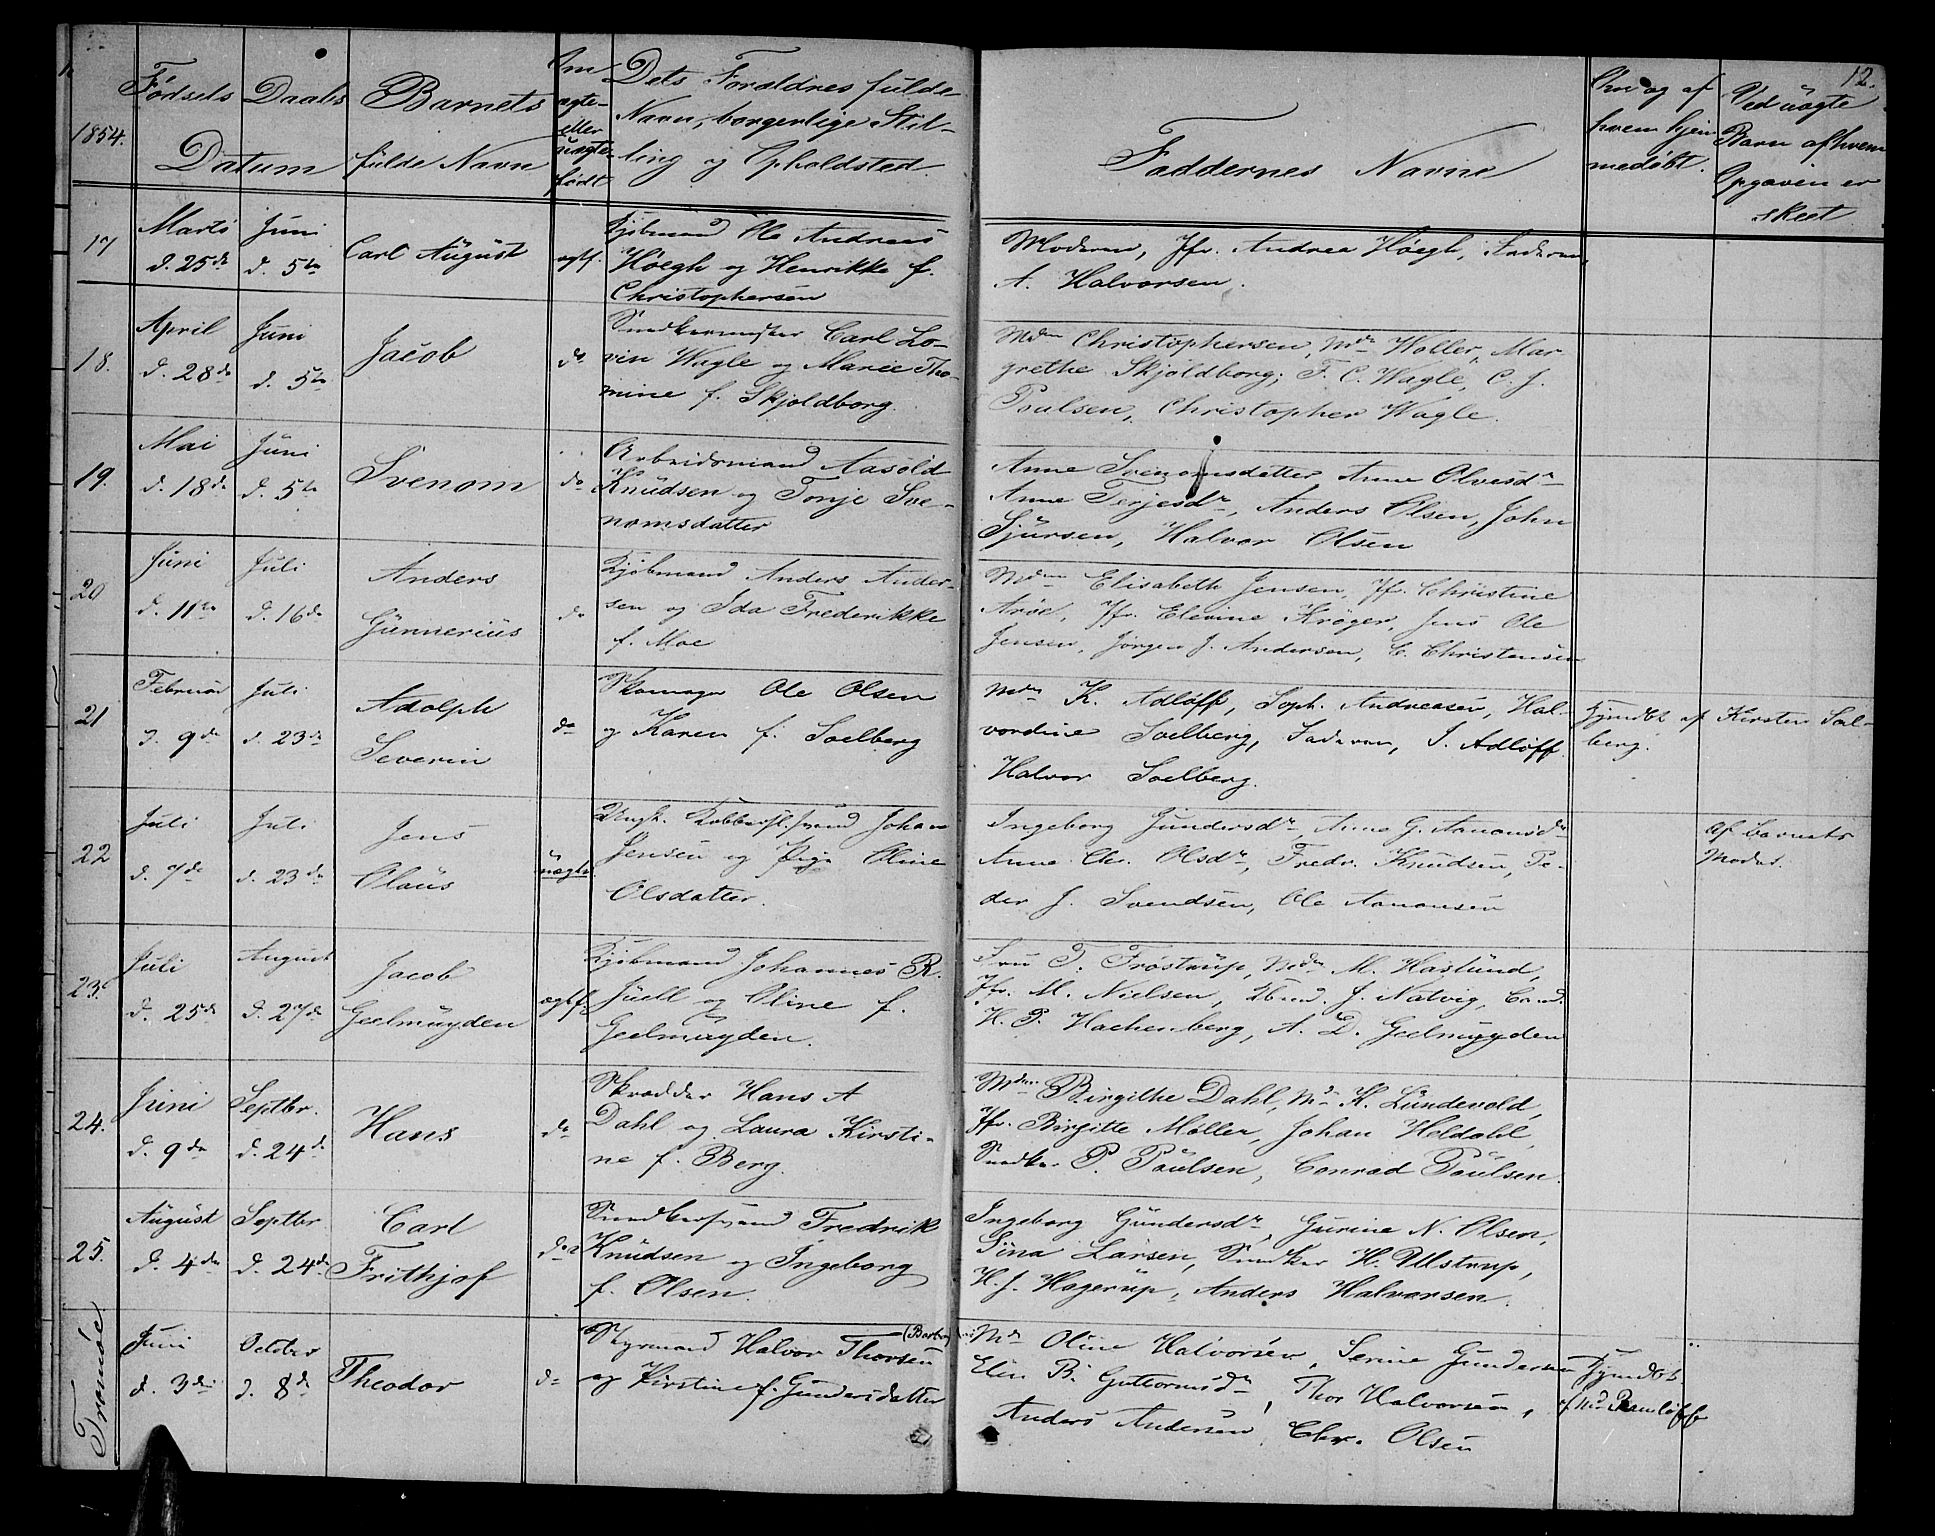 12.
1854.
Fødsels Daabs
Datum
Barnets
fulde Navn
Om
ægte-
eller
uægte-
født
Dets Forældres fulde
Navn, borgerlige Stil-
ling og Opholdsted.
Faddernes Navne
Om og af
hvem hjem
medøbt.
Ved uægte
Barn af hvem
Opgaven er
skeet
17
Marts
d. 25de
Juni
d. 5te
Carl August
ægtf.
Kjøbmand Ole Andreas
Høegh og Henrikke f.
Christophersen
Moderen, Jfr. Andrea Høegh, Faderen,
A. Halvorsen.
18.
April
d. 28de
Juni
d. 5te
Jacob
do
Snedkermester Carl Lo-
vin Wagle og Marie Tho-
mine f. Skjoldborg.
Mdm Christophersen, Mdm Holler, Mar-
grethe Skjoldborg; F. C. Wagle, C. J.
Poulsen, Christopher Wagle.
19.
Mai
d. 18de
Juni
d. 5te
Svenom
do
Arbeidsmand Aasold
Knudsen og Tonje Sve-
nomsdatter
Anne Svenomsdatter Anne Olvesdr
Anne Terjesdr, Anders Olsen, John
Sjursen, Halvor Olsen
20
Juni
d. 11te
Juli
d. 16de
Anders
Gunnerius
do
Kjøbmand Anders Ander-
sen og Ida Frederikke
f. Moe
Mdm Elisabeth Jensen, Jfr. Christine
Arøe, Jfr. Elevine Krøger, Jens Ole
Jensen, Jørgen J. Andersen, C. Christensen
21
Februar
d. 9de
Juli
d. 23de
Adolph
Severin
do
Skomager Ole Olsen
og Karen f. Soelberg
Mdm K. Adløff, Soph. Andreasen, Hal-
vordine Soelberg, Faderen, J. Adløff
Halvor Soelberg.
Hjemdbt af Kirsten Sol-
berg.
22
Juli
d. 7de
Juli
d. 23de
Jens
Olaus
uægte
Ungk. Kobbersl.svend Johan
Jensen og Pige Oline
Olsdatter.
Ingeborg Gundersdr Anne G. Aanonsdr
Anne Chr. Olsdr, Fredr. Knudsen, Pe-
der J. Svendsen, Ole Aanonsen
Af barnets
Moder.
23.
Juli
d. 25de
August
d. 27de
Jacob
Geelmuyden
ægtf
Kjøbmand Johannes R.
Juell og Oline f.
Geelmuyden.
Fru T. Frøstrup, Mdm M. Haslund,
Jfr. M. Nielsen, J. Natvig, Cand.
H. P. Hachenberg, A. D. Geelmuyden
24.
Juni
d. 9de
Septbr.
d. 24de
Hans
do
Skrædder Hans A
Dahl og Laura Kirsti-
ne f. Berg.
Mdm Birgithe Dahl, Md K. Lundevold,
Jfr. Birgitte Møller, Johan Heldahl,
Snedker P. Poulsen, Conrad Poulsen.
25.
August
d. 4de
Septbr
d. 24de
Carl
Frithjof
do
Snedkersvend Fredrik
Knudsen og Ingeborg
f. Olsen.
Ingeborg Gundersdr, Gurine N. Olsen,
Sina Larsen, Snedker H. Ulstrup,
H. J. Hagerup, Anders Halvorsen.
Tromsøe.
Juni
d. 3die
October
d. 8de
Theodor
do
Styrmand Halvor Thorsen
og Kirstine f. Gundersdatter
Md Oline Halvorsen, Serine Gundersen
Elen B. Guttormsdr, Thor Halvorsen,
Anders Andersen, Chr. Olsen
Hjemdbt.